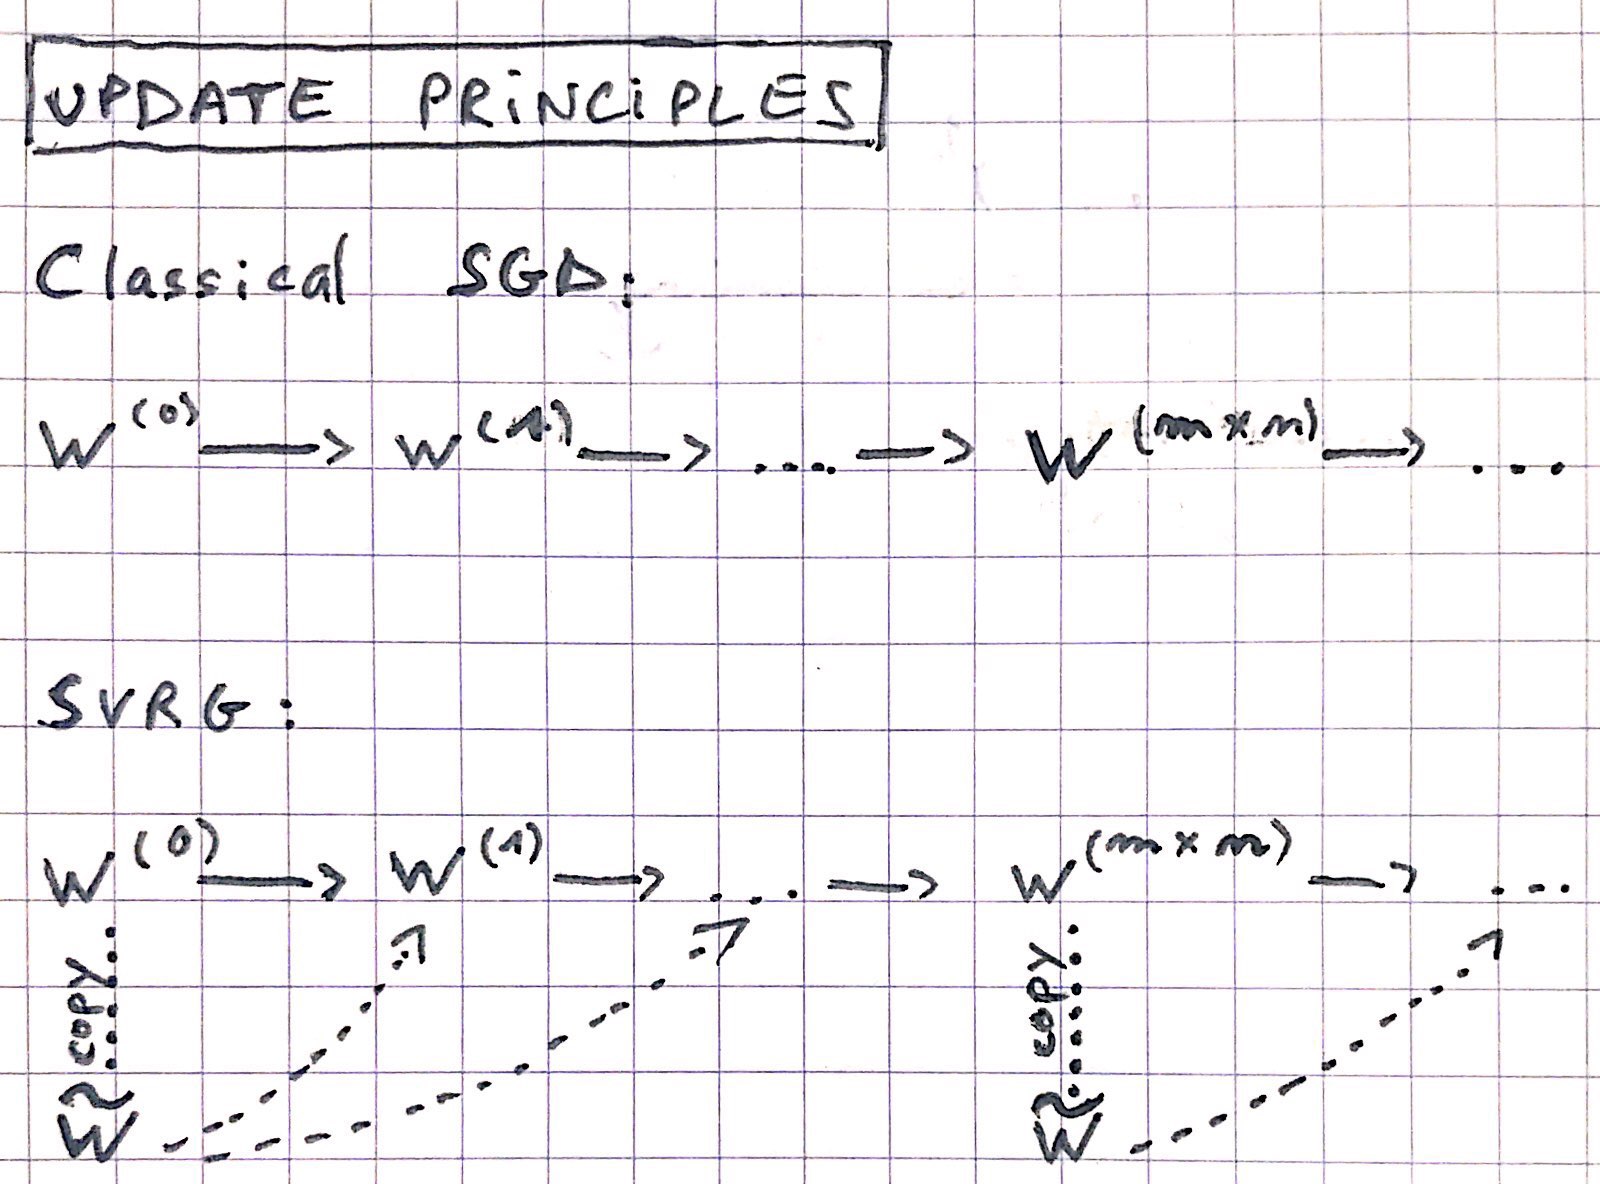 UPDATE PRiNCiPLES
Classical SGD:
W^(0) → W^(1) → .... → W^(m×n) → ...
SVRG:
W^(0) → W^(1) → .... → W^(m×n) → ...
copy copy
W̃ W̃